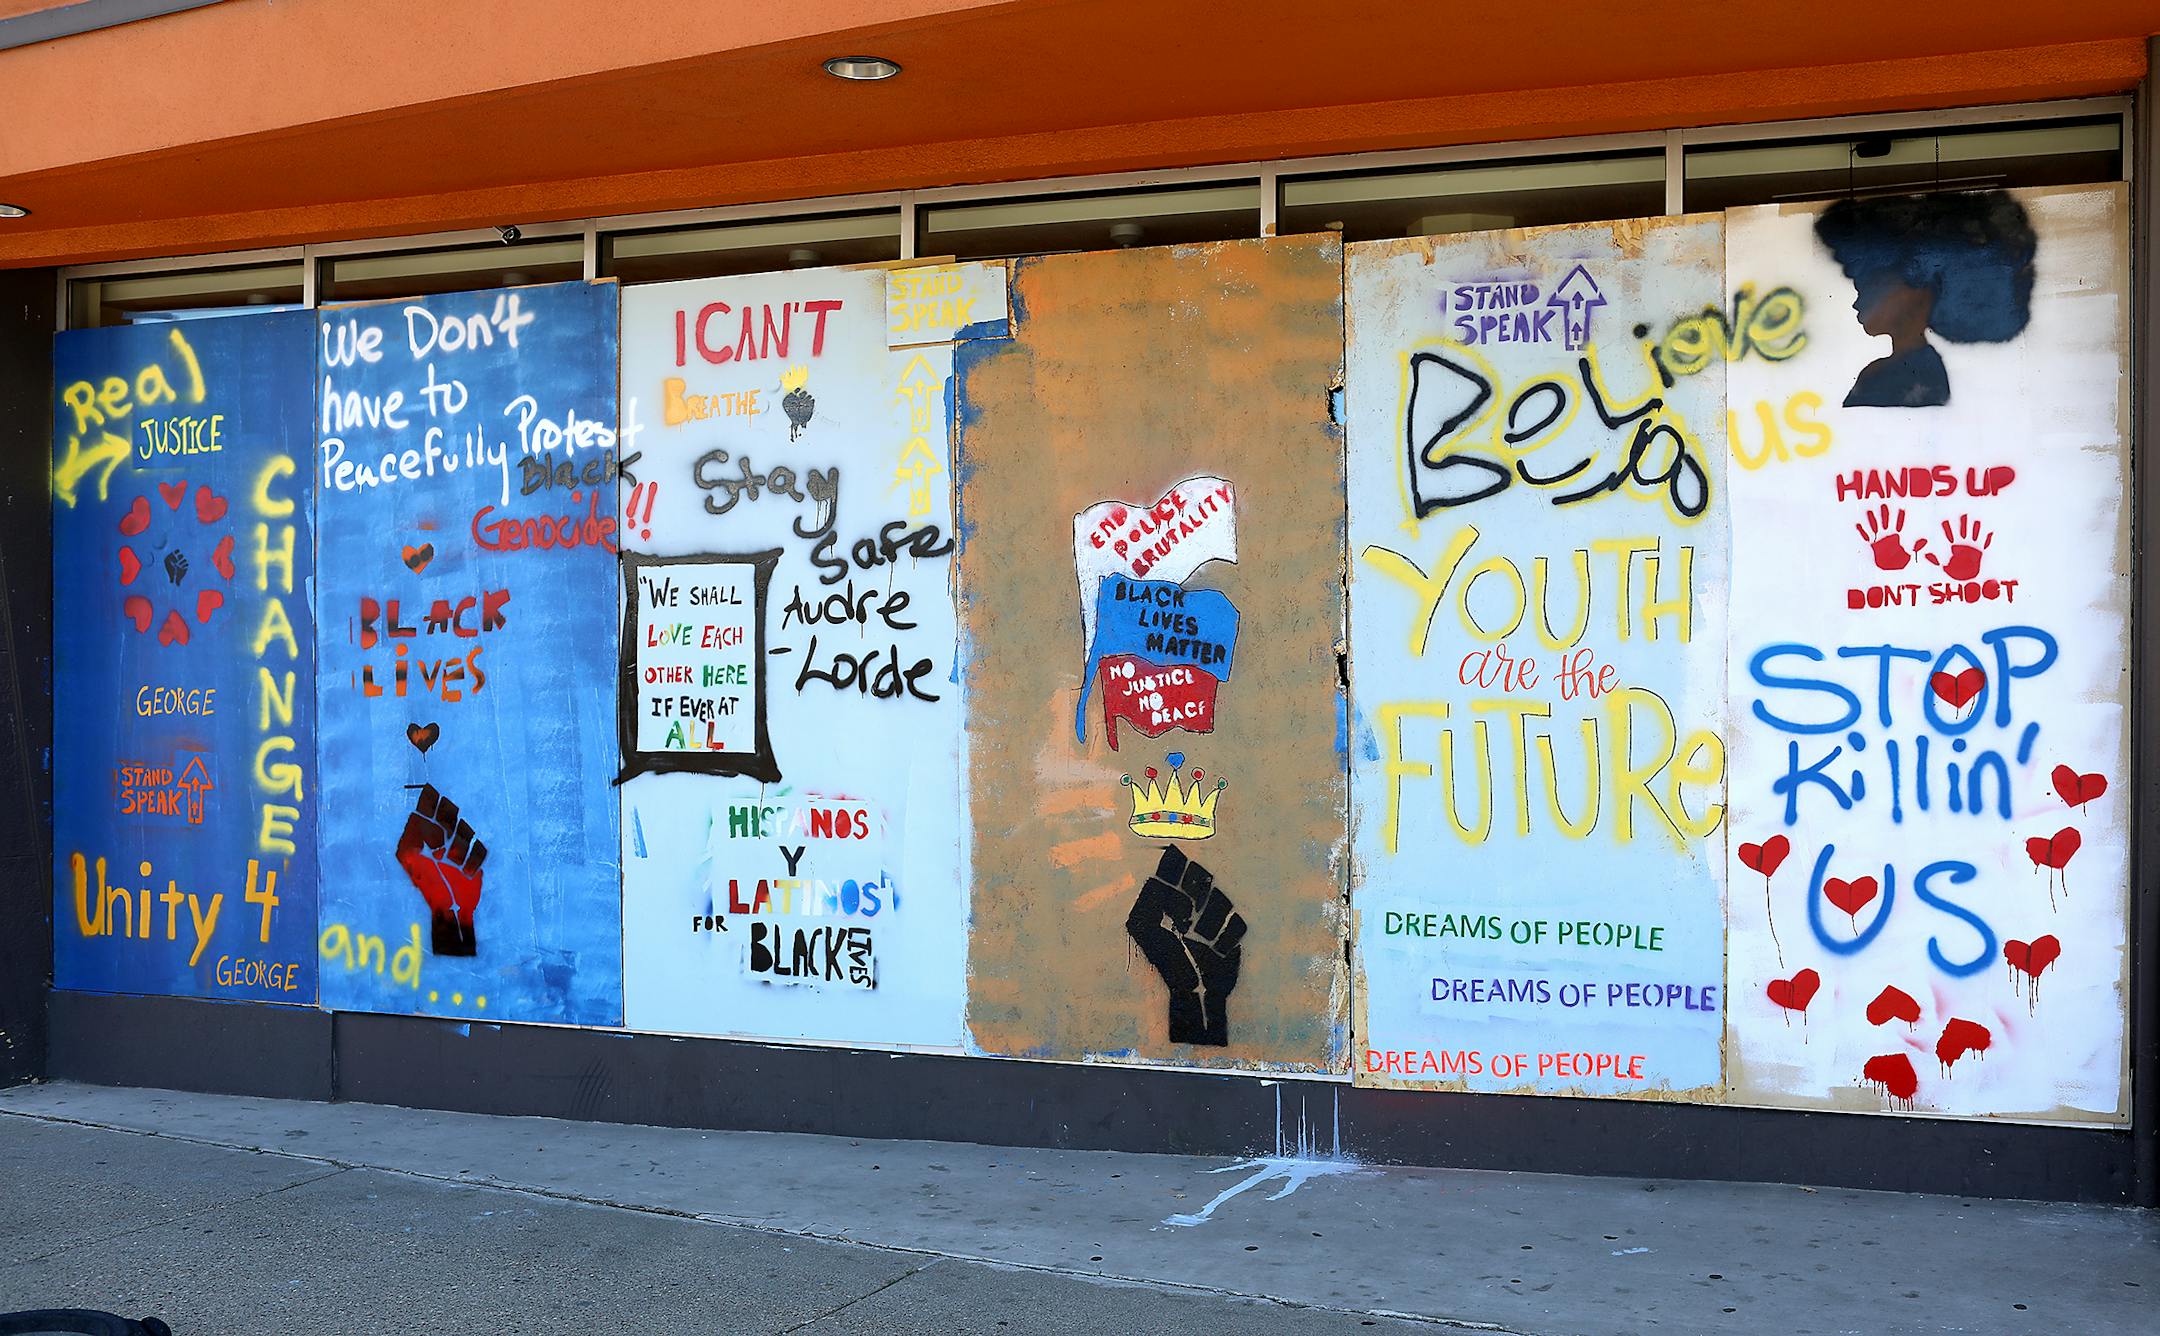 Real
JUSTICE
CHANGE
GEORGE
STAND
SPEAK
Unity 4
GEORGE
We Don't
have to
Peacefully Protest
Black
Genocide!!
BLACK
LIVES
and...
I CAN'T
BREATHE
STAND
SPEAK
Stay
Safe
"WE SHALL
LOVE EACH
OTHER HERE
IF EVER AT
ALL
Audre
-Lorde
HISPANOS
Y
LATINOS
FOR
BLACK
LIVES
END
POLICE
BRUTALITY
BLACK
LIVES
MATTER
NO
JUSTICE
NO
PEACE
STAND
SPEAK
BeLieve
us
YOUTH
are the
FUTURe
DREAMS OF PEOPLE
DREAMS OF PEOPLE
DREAMS OF PEOPLE
HANDS UP
DON'T SHOOT
STOP
Killin'
US